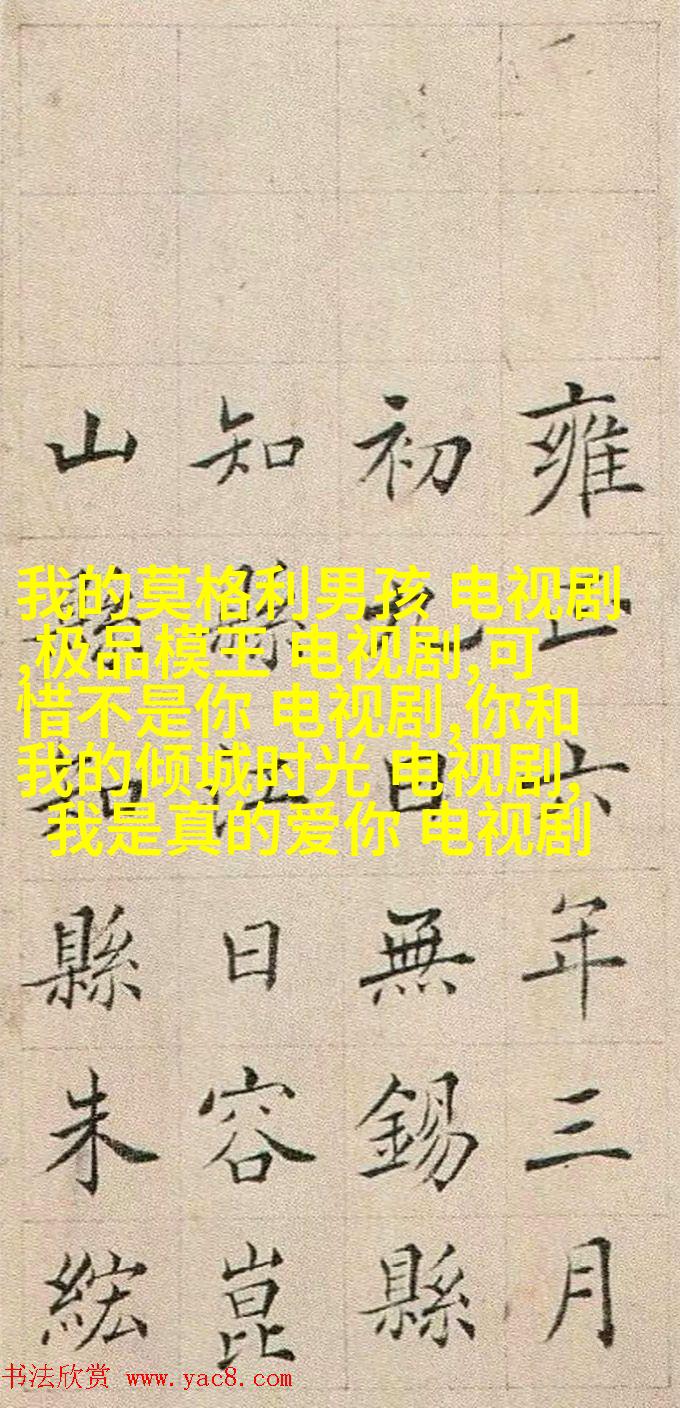 雍正六年三月
初九日無錫縣
知縣江日容崑
山縣知縣朱紘
我的莫格利男孩 电视剧
,极品模王 电视剧,可
惜不是你 电视剧,你和
我的倾城时光 电视剧,
我是真的爱你 电视剧
书法欣赏 www.yac8.com